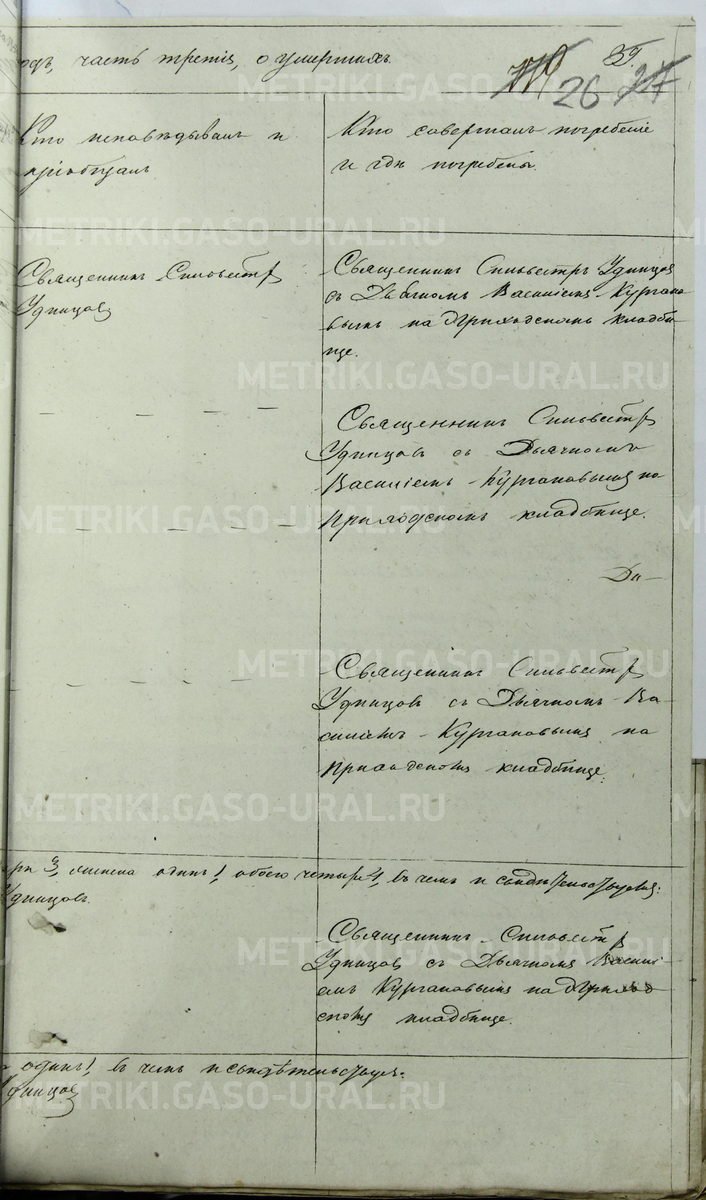 одъ, часть третія, о умершихъ.
26
Кто исповѣдывалъ и
пріобщалъ
Кто совершалъ погребеніе
и гдѣ погребены.
Священникъ Сильвестръ
Удинцовъ
Священникъ Сильвестръ Удинцовъ
съ Дьячкомъ Василіемъ Кургано
вымъ на Приходскомъ кладби
ще.
Священникъ Сильвестръ
Удинцовъ съ Дьячкомъ
Василіемъ Кургановымъ на
Приходскомъ кладбище.
Священникъ Сильвестръ
Удинцовъ съ Дьячкомъ Ва-
силіемъ Кургановымъ на
Приходскомъ кладбище.
3, женска одинъ 1, обоего четыре 4, въ чемъ и свидѣтельствуемъ:
Удинцовъ
Священникъ Сильвестръ
Удинцовъ съ Дьячкомъ Василі-
емъ Кургановымъ на Приход
скомъ кладбище.
одинъ 1, въ чемъ и свидѣтельствуемъ:
Удинцовъ
METRIKI.GASO-URAL.RU